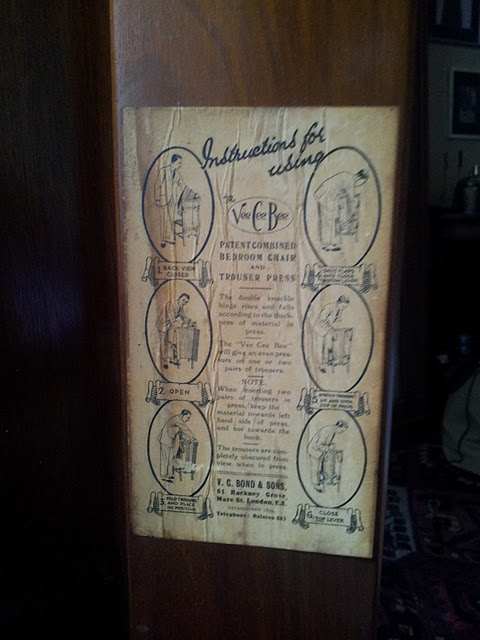 Instructions for
using
The
Vee Cee Bee
PATENT COMBINED
BEDROOM CHAIR
AND
TROUSER PRESS
The double knuckle
hinge rises and falls
according to the thick-
ness of material in
press.
The "Vee Cee Bee"
will give an even pres-
sure on one or two
pairs of trousers.
NOTE.
When inserting two
pairs of trousers in
press, keep the
material towards left
hand side of press,
and not towards the
hook.
The trousers are com-
pletely obscured from
view when in press.
V. C. BOND & SONS,
61 Hackney Grove,
Mare St. London, E.8.
ESTABLISHED
Telephone:
1. BACK VIEW
CLOSED
2. OPEN
3. FOLD TROUSERS
AND PLACE
IN POSITION
4. SHUT FLAPS
AND CLOSE
BOTTOM LEVER
5.
6. CLOSE
TOP LEVER